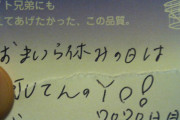 ト兄弟にも
えてあげたかった、この品質。
おまいら休みの日は
何してんのYO!